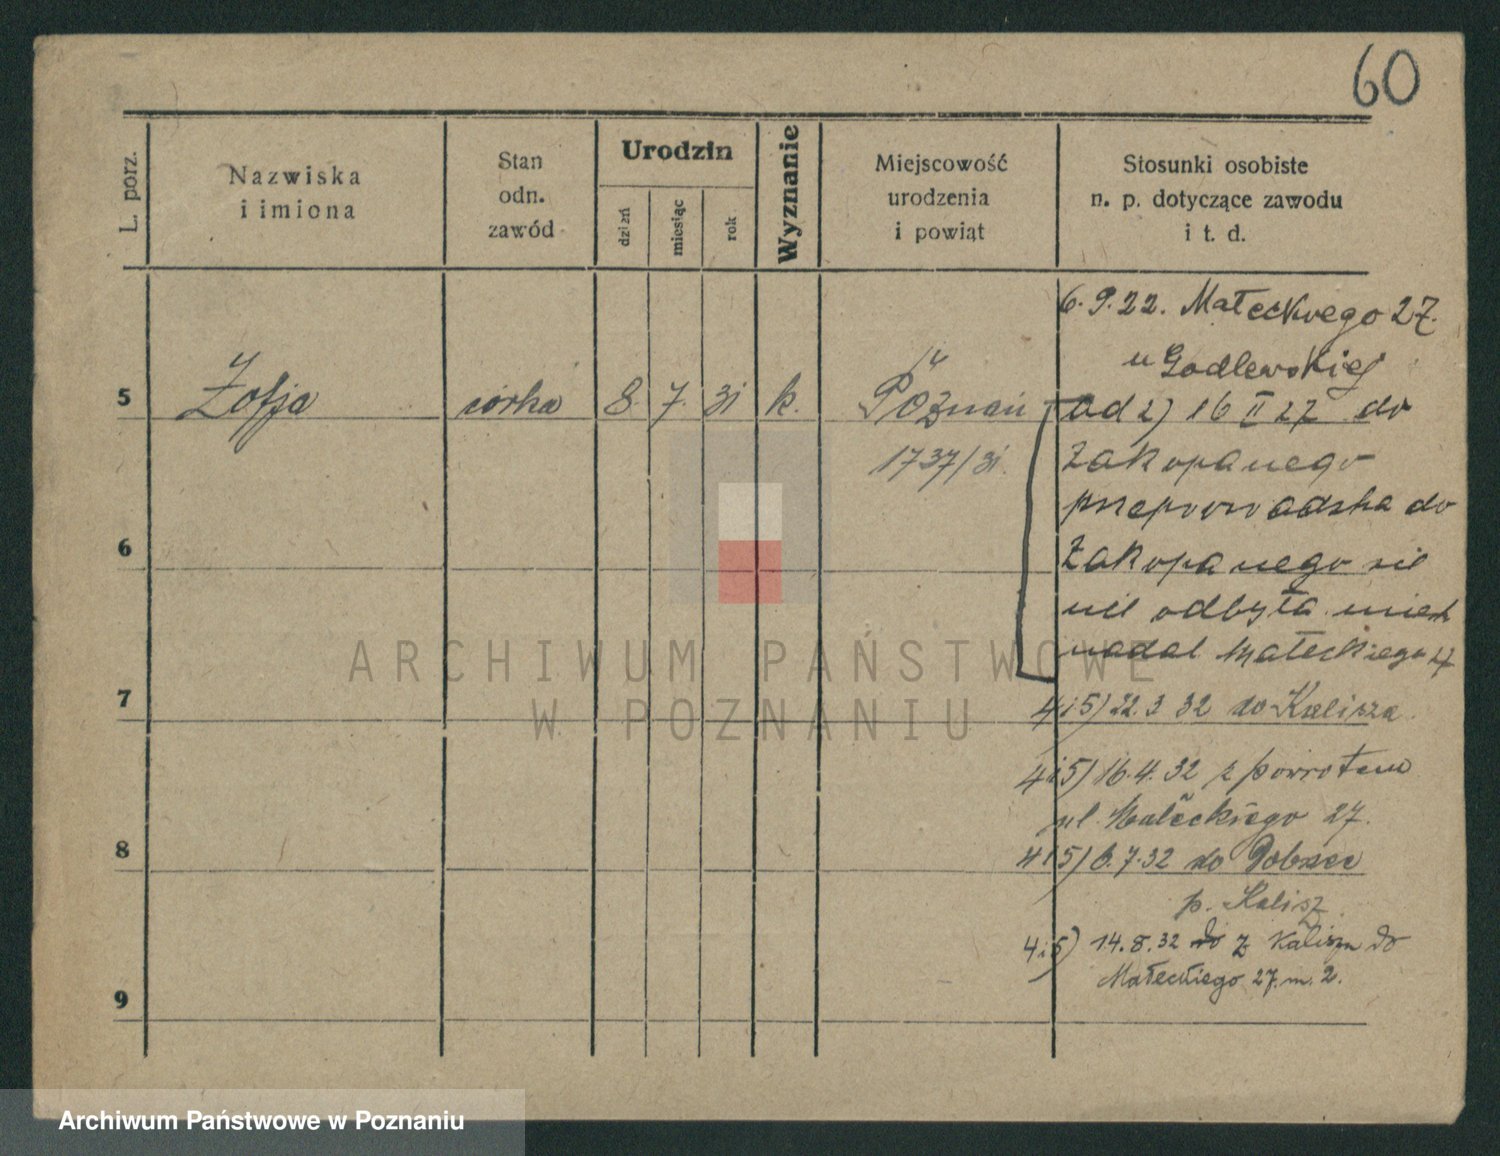 60
L. porz.
Nazwiska
i imiona
Stan
odn.
zawód
Urodzin
dzień
miesiąc
rok
Wyznanie
Miejscowość
urodzenia
i powiąt
Stosunki osobiste
n. p. dotyczące zawodu
i t. d.
6.9.22. Małeckiego 27.
u Godlewskiej
5 Zofja córka 8. 7. 31 k. Poznań
1737/31.
ad 2) 16 II 27 do
Zakopanego
przeprowadzka do
Zakopanego się
nie odbyła miesz
nadal Małeckiego 27
4i5) 22.3 32 do Kalisza
4i5) 16.4.32 z powrotem
ul. Małeckiego 27.
4i5) 6.7.32 do Dobrzec
p. Kalisz
4i5) 14.8.32 do z Kalisza do
Małeckiego 27. m. 2.
6
7
8
9
ARCHIWUM PAŃSTWOWE
W POZNANIU
Archiwum Państwowe w Poznaniu